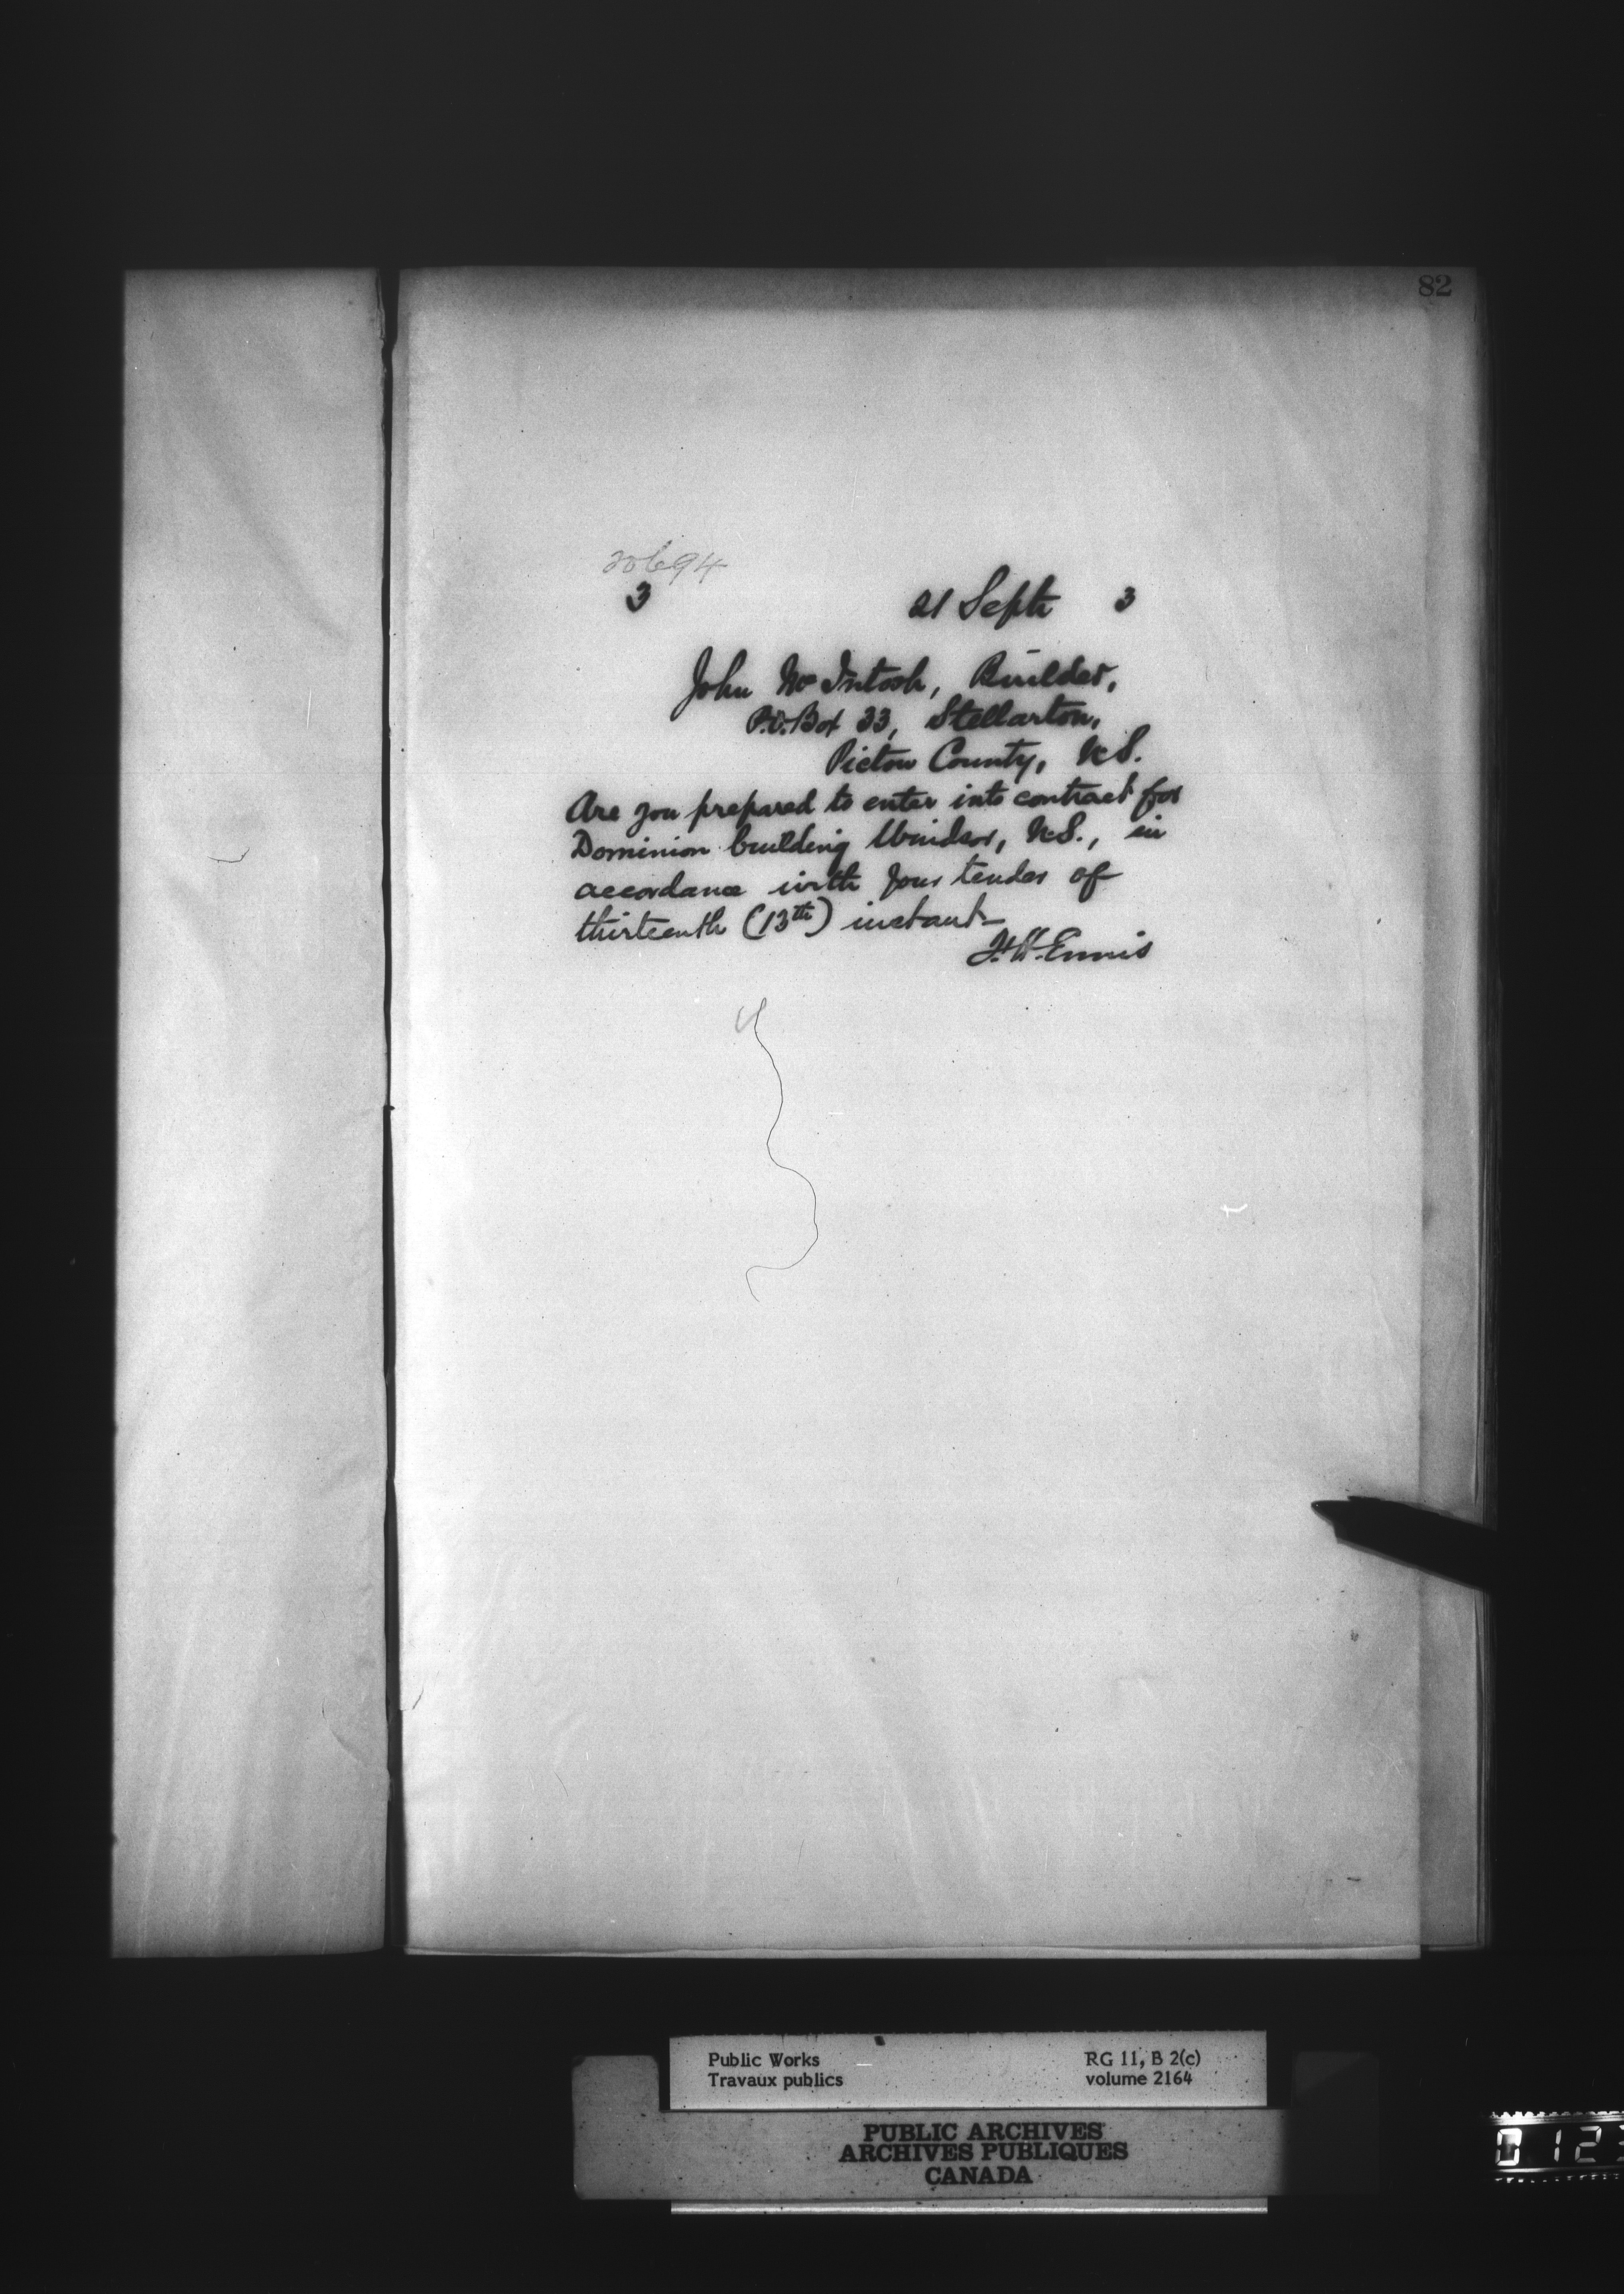 82
20694
3 21 Septr 3
John McIntosh, Builder,
P.O. Box 33, Stellarton,
Pictou County, N.S.
Are you prepared to enter into contract for
Dominion building Windsor, N.S., in
accordance with your tender of
thirteenth (13th) instant—
F.H. Ennis
Public Works RG 11, B 2(c)
Travaux publics volume 2164
PUBLIC ARCHIVES
ARCHIVES PUBLIQUES
CANADA